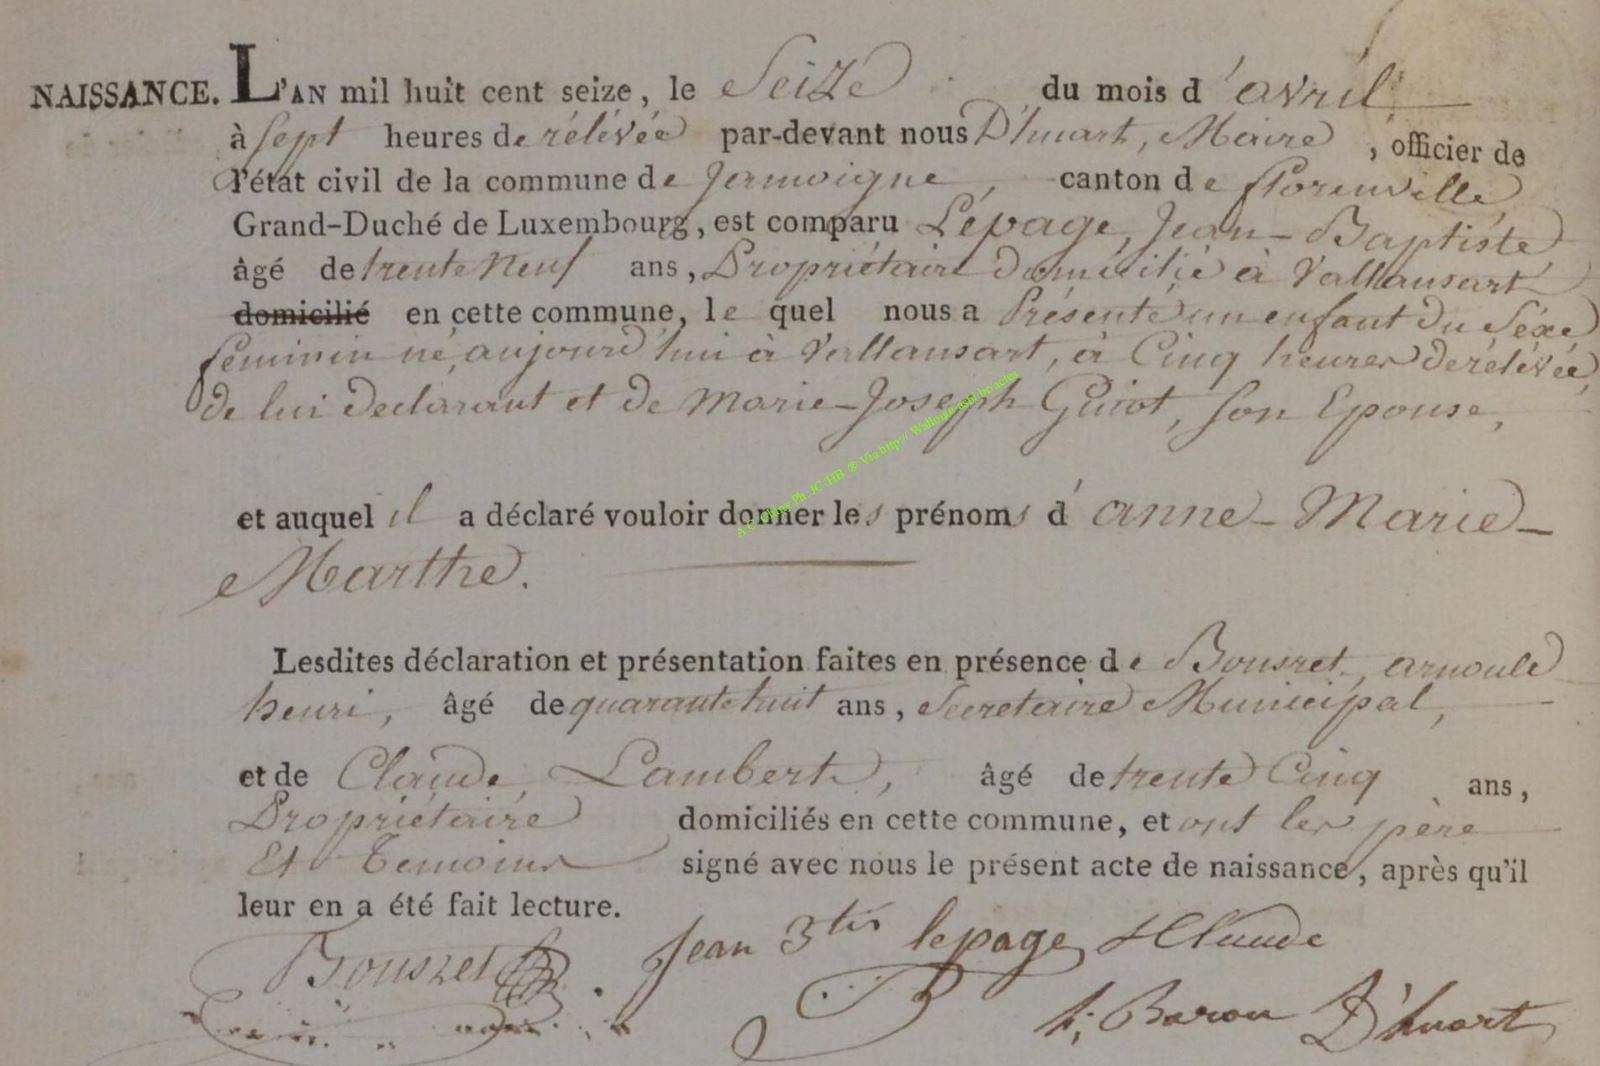 NAISSANCE. L'AN mil huit cent seize, le Seize du mois d'avril
à sept heures de rélévée par-devant nous D'huart, Maire, officier de
l'état civil de la commune de Jamoigne, canton de florenville
Grand-Duché de Luxembourg, est comparu Lépage, Jean-Baptiste,
âgé de trente neuf ans, Propriétaire domicilié à Vallansart
domicilié en cette commune, le quel nous a Présenté un enfant du Séxe
féminin né, aujourd'hui à Vallansart, à Cinq heures de rélévée,
de lui declarant et de Marie-Joseph Guiot, son Epouse,
et auquel il a déclaré vouloir donner les prénoms d'anne-Marie-
Marthe.
Lesdites déclaration et présentation faites en présence de Bousret, arnould
henri, âgé de quarante huit ans, Secretaire Municipal,
et de Claude, Lambert, âgé de trente Cinq ans,
Propriétaire domiciliés en cette commune, et ont les père
Et Temoins signé avec nous le présent acte de naissance, après qu'il
leur en a été fait lecture.
Bousret Jean Btis lepage L Claude
h; Baron D'huart